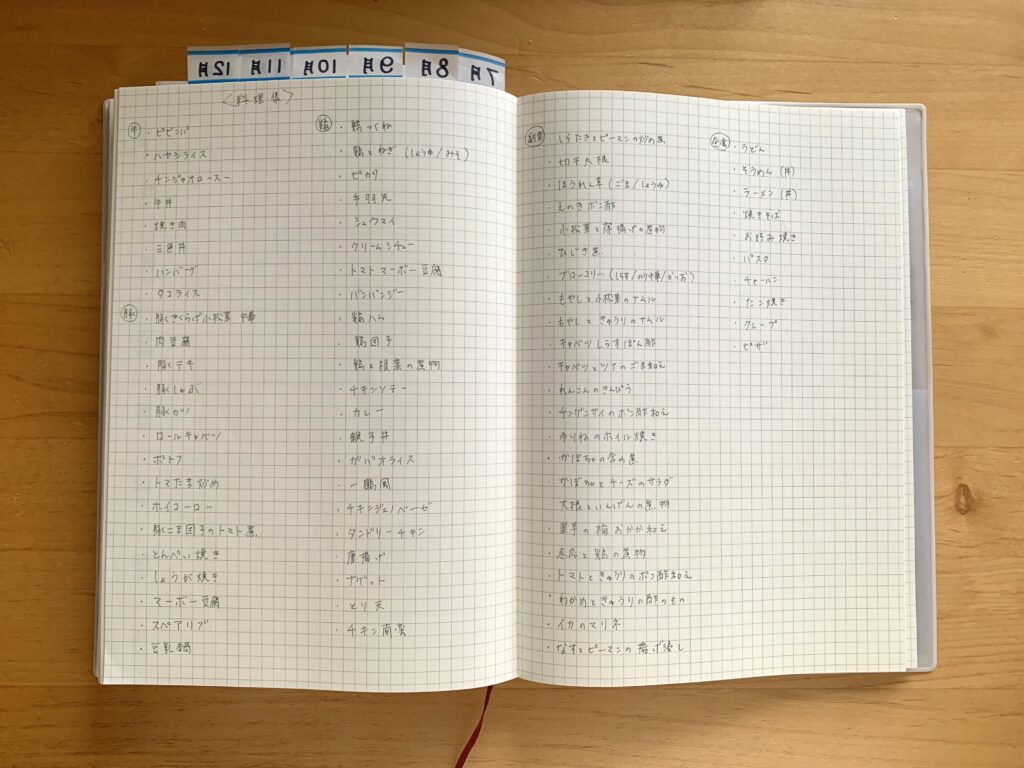 12月
11月
10月
9月
8月
7月
<料理集>
牛
・ビビンバ
・ハヤシライス
・チンジャオロースー
・牛丼
・焼き肉
・三色丼
・ハンバーグ
・タコライス
豚
・豚ときくらげ小松菜 中華
・肉豆腐
・豚テキ
・豚しゃぶ
・豚カツ
・ロールキャベツ
・ポトフ
・トマたま炒め
・ホイコーロー
・豚こま団子のトマト煮
・とんぺい焼き
・しょうが焼き
・マーボー豆腐
・スペアリブ
・豆乳鍋
鶏
・鶏つくね
・鶏とねぎ (しょうゆ/みそ)
・ピカタ
・手羽先
・シュウマイ
・クリームシチュー
・トマトマーボー豆腐
・バンバンジー
・鶏ハム
・鶏団子
・鶏と根菜の煮物
・チキンソテー
・カレー
・親子丼
・ガパオライス
・一鶴風
・チキンジェノベーゼ
・タンドリーチキン
・唐揚げ
・ナゲット
・とり天
・チキン南蛮
副菜
・しらたきとピーマンの炒め煮
・切干大根
・ほうれん草 (ごま/しょうゆ)
・えのきポン酢
・小松菜と薄揚げの煮物
・ひじき煮
・ブロッコリー (しらす/のり中華/かつお)
・もやしと小松菜のナムル
・もやしときゅうりのナムル
・キャベツしらすぽん酢
・キャベツとツナのごま和え
・れんこんのきんぴら
・チンゲンサイのポン酢和え
・ゆりねのホイル焼き
・かぼちゃの含め煮
・かぼちゃとチーズのサラダ
・大根といんげんの煮物
・里芋の梅おかか和え
・冬瓜と鶏の煮物
・トマトときゅうりのポン酢和え
・わかめときゅうりの酢のもの
・イカのマリネ
・なすとピーマンの揚げ浸し
・うどん
・そうめん (丼)
・ラーメン (丼)
・焼きそば
・お好み焼き
・パスタ
・チャーハン
・たこ焼き
・クレープ
・ピザ